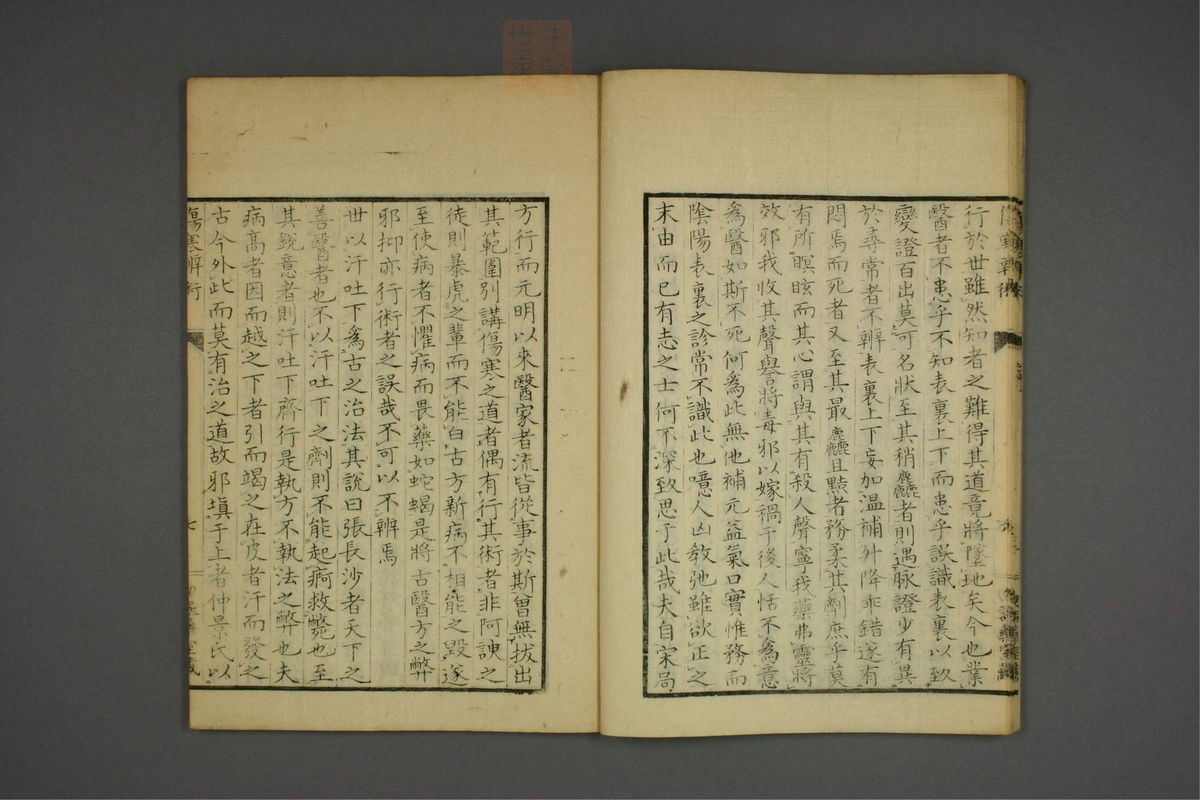 行於世雖然知者之難得其道竟將墜地矣今也業
醫者不患乎不知表裏上下而患乎誤識表裏以致
變證百出莫可名狀至其稍麤者則遇脉證少有異
於尋常者不辨表裏上下妄加溫補外降乖錯遂有
悶焉而死者又至其最麤且黠者務柔其劑庶乎莫
有所瞑眩而其心謂與其有殺人聲寧我藥弗靈將
效邪我收其聲譽將毒邪以嫁禍于後人恬不爲意
爲醫如斯不死何爲此無他補元益氣口實惟務而
陰陽表裏之診常不識此也噫人凶教弛雖欲正之
末由而已有志之士何不深致思于此哉夫自宋局
方行而元明以來醫家者流皆從事於斯曾無拔出
其範圍別講傷寒之道者偶有行其術者非阿諛之
徒則暴虎之輩而不能白古方新病不相能之毀遂
至使病者不懼病而畏藥如蛇蝎是將古醫方之弊
邪抑亦行術者之誤哉不可以不辨焉
世以汗吐下爲古之治法其說曰張長沙者天下之
善醫者也不以汗吐下之劑則不能起痾救斃也至
其銳意者則汗吐下齊行是執方不執法之弊也夫
病高者因而越之下者引而竭之在皮者汗而發之
古今外此而莫有治之道故邪塡于上者仲景氏以
傷寒辨術
七